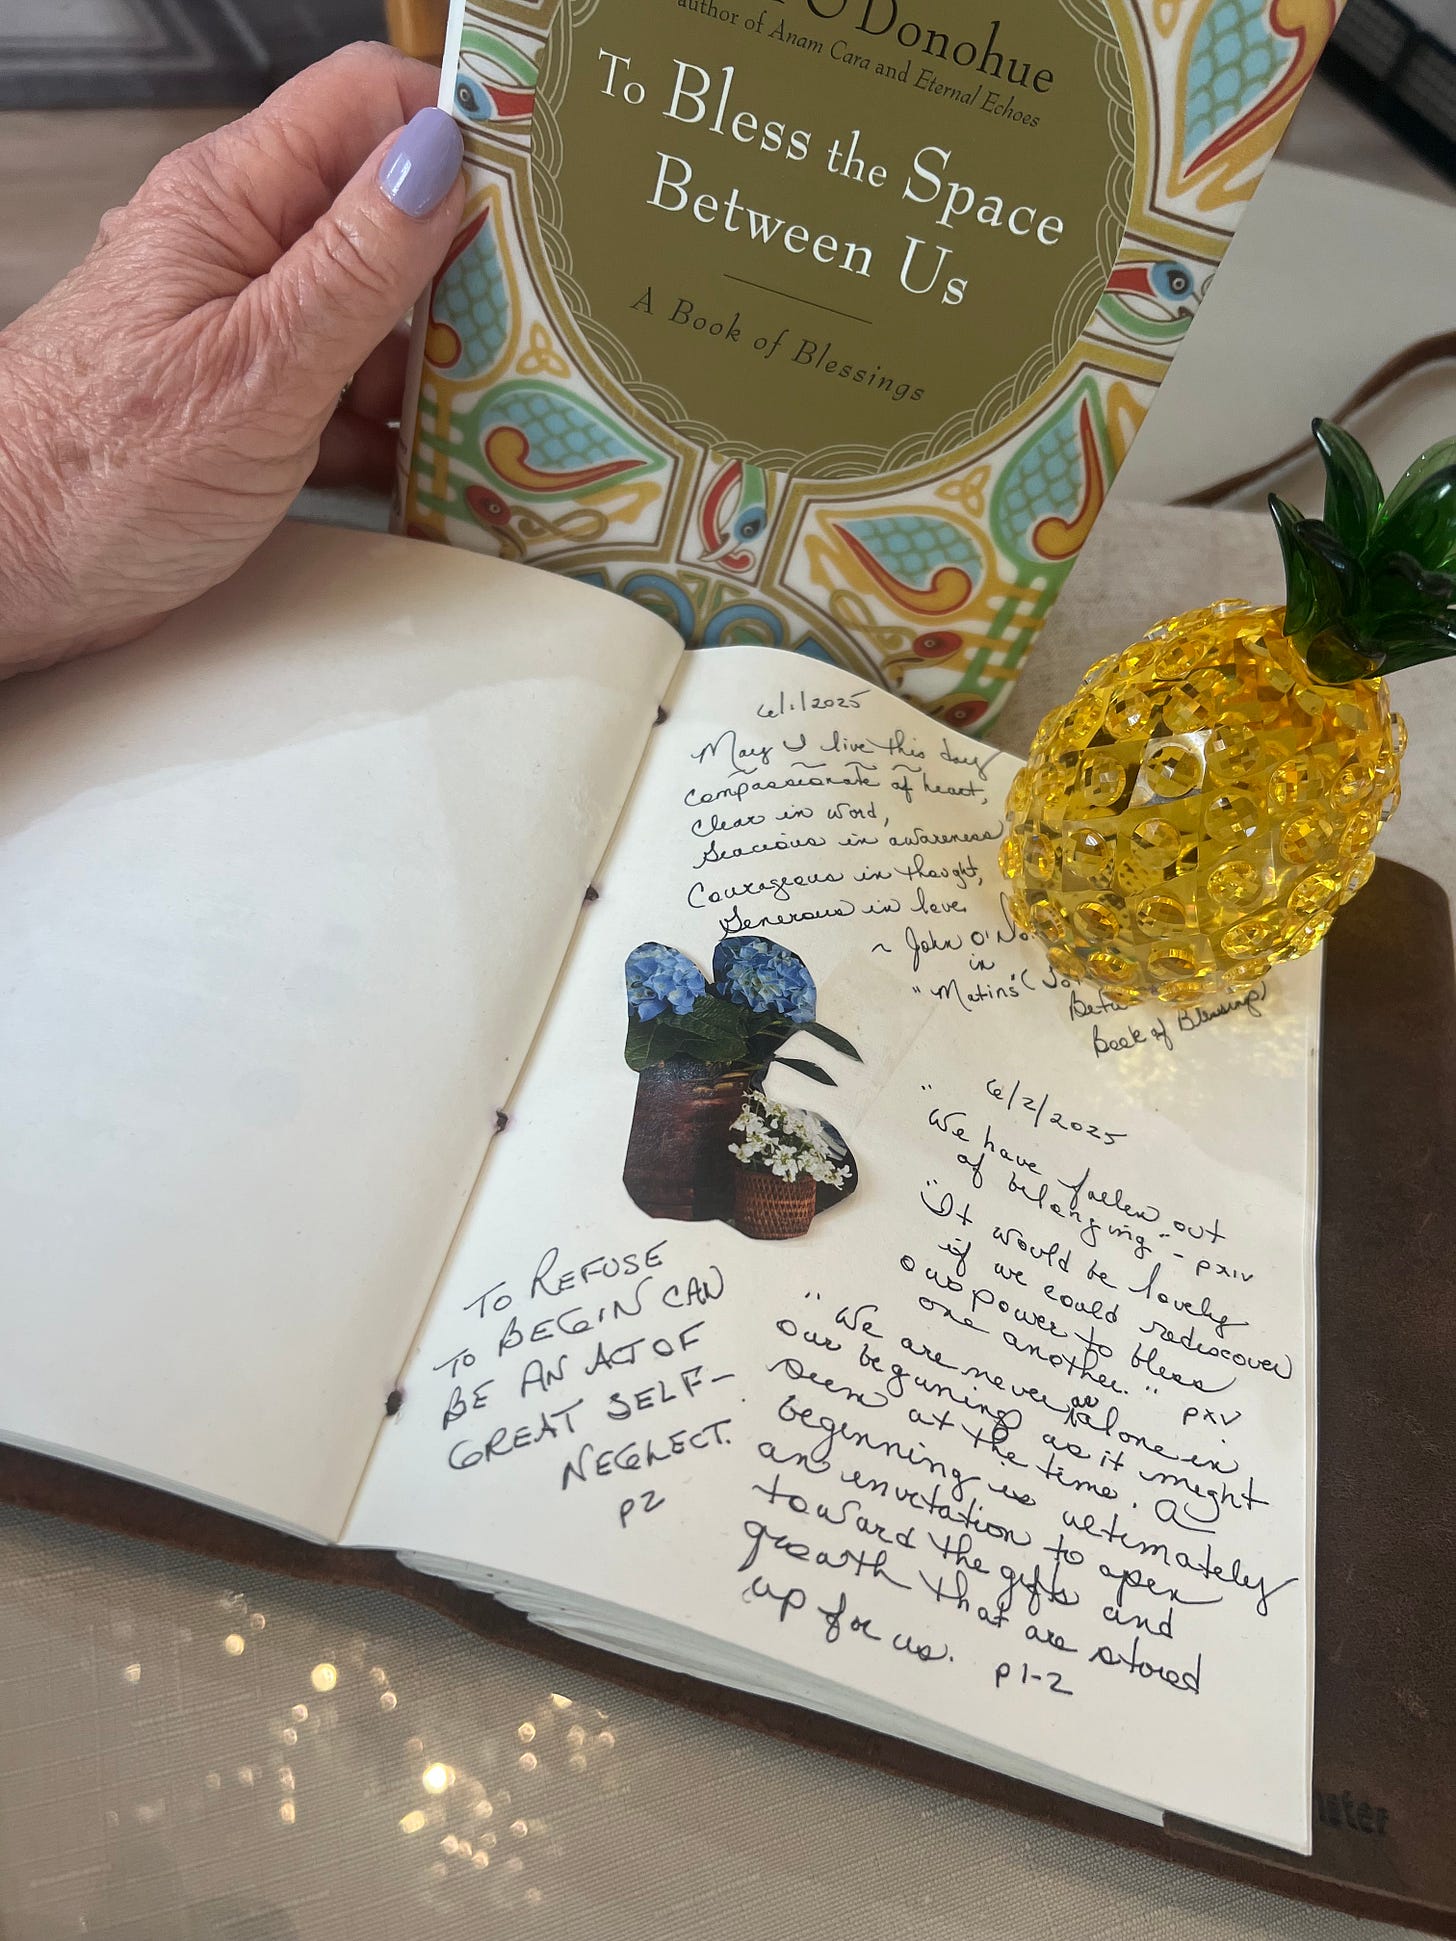 O'Donohue
author of Anam Cara and Eternal Echoes
To Bless the Space
Between Us
A Book of Blessings
6/1/2025
May I live this day
Compassionate of heart,
Clear in word,
Gracious in awareness
Courageous in thought,
Generous in love.
~ John O'Do
in
"Matins" (To
Betw
Book of Blessings)
6/2/2025
"We have fallen out
of belonging" - pxiv
"It would be lovely
if we could rediscover
our power to bless
one another." pxv
"We are never as alone in
our beginning as it might
seem at the time. A
beginning is ultimately
an invitation to open
toward the gifts and
growth that are stored
up for us. p1-2
TO REFUSE
TO BEGIN CAN
BE AN ACT OF
GREAT SELF-
NEGLECT.
p2